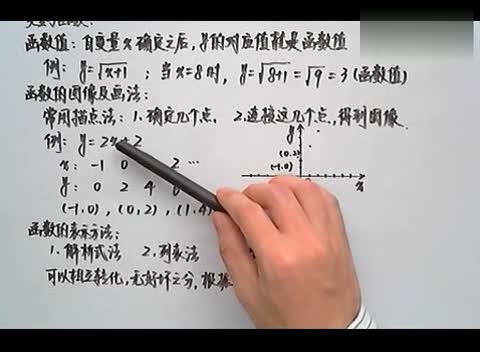 函数值：自变量x确定之后，y的对应值就是函数值
例：y=√x+1；当x=8时，y=√8+1=√9=3(函数值)
函数的图像及画法：
常用描点法：1.确定几个点，2.连接这几个点，得到图像.
例：y=2x+2
x： -1 0 2 …
y： 0 2 4
(-1.0)，(0,2)，(1.4)
y
(0.2)
(-1.0)
x
函数的表示方法：
1.解析式法 2.列表法
可以相互转化，无好坏之分，根据